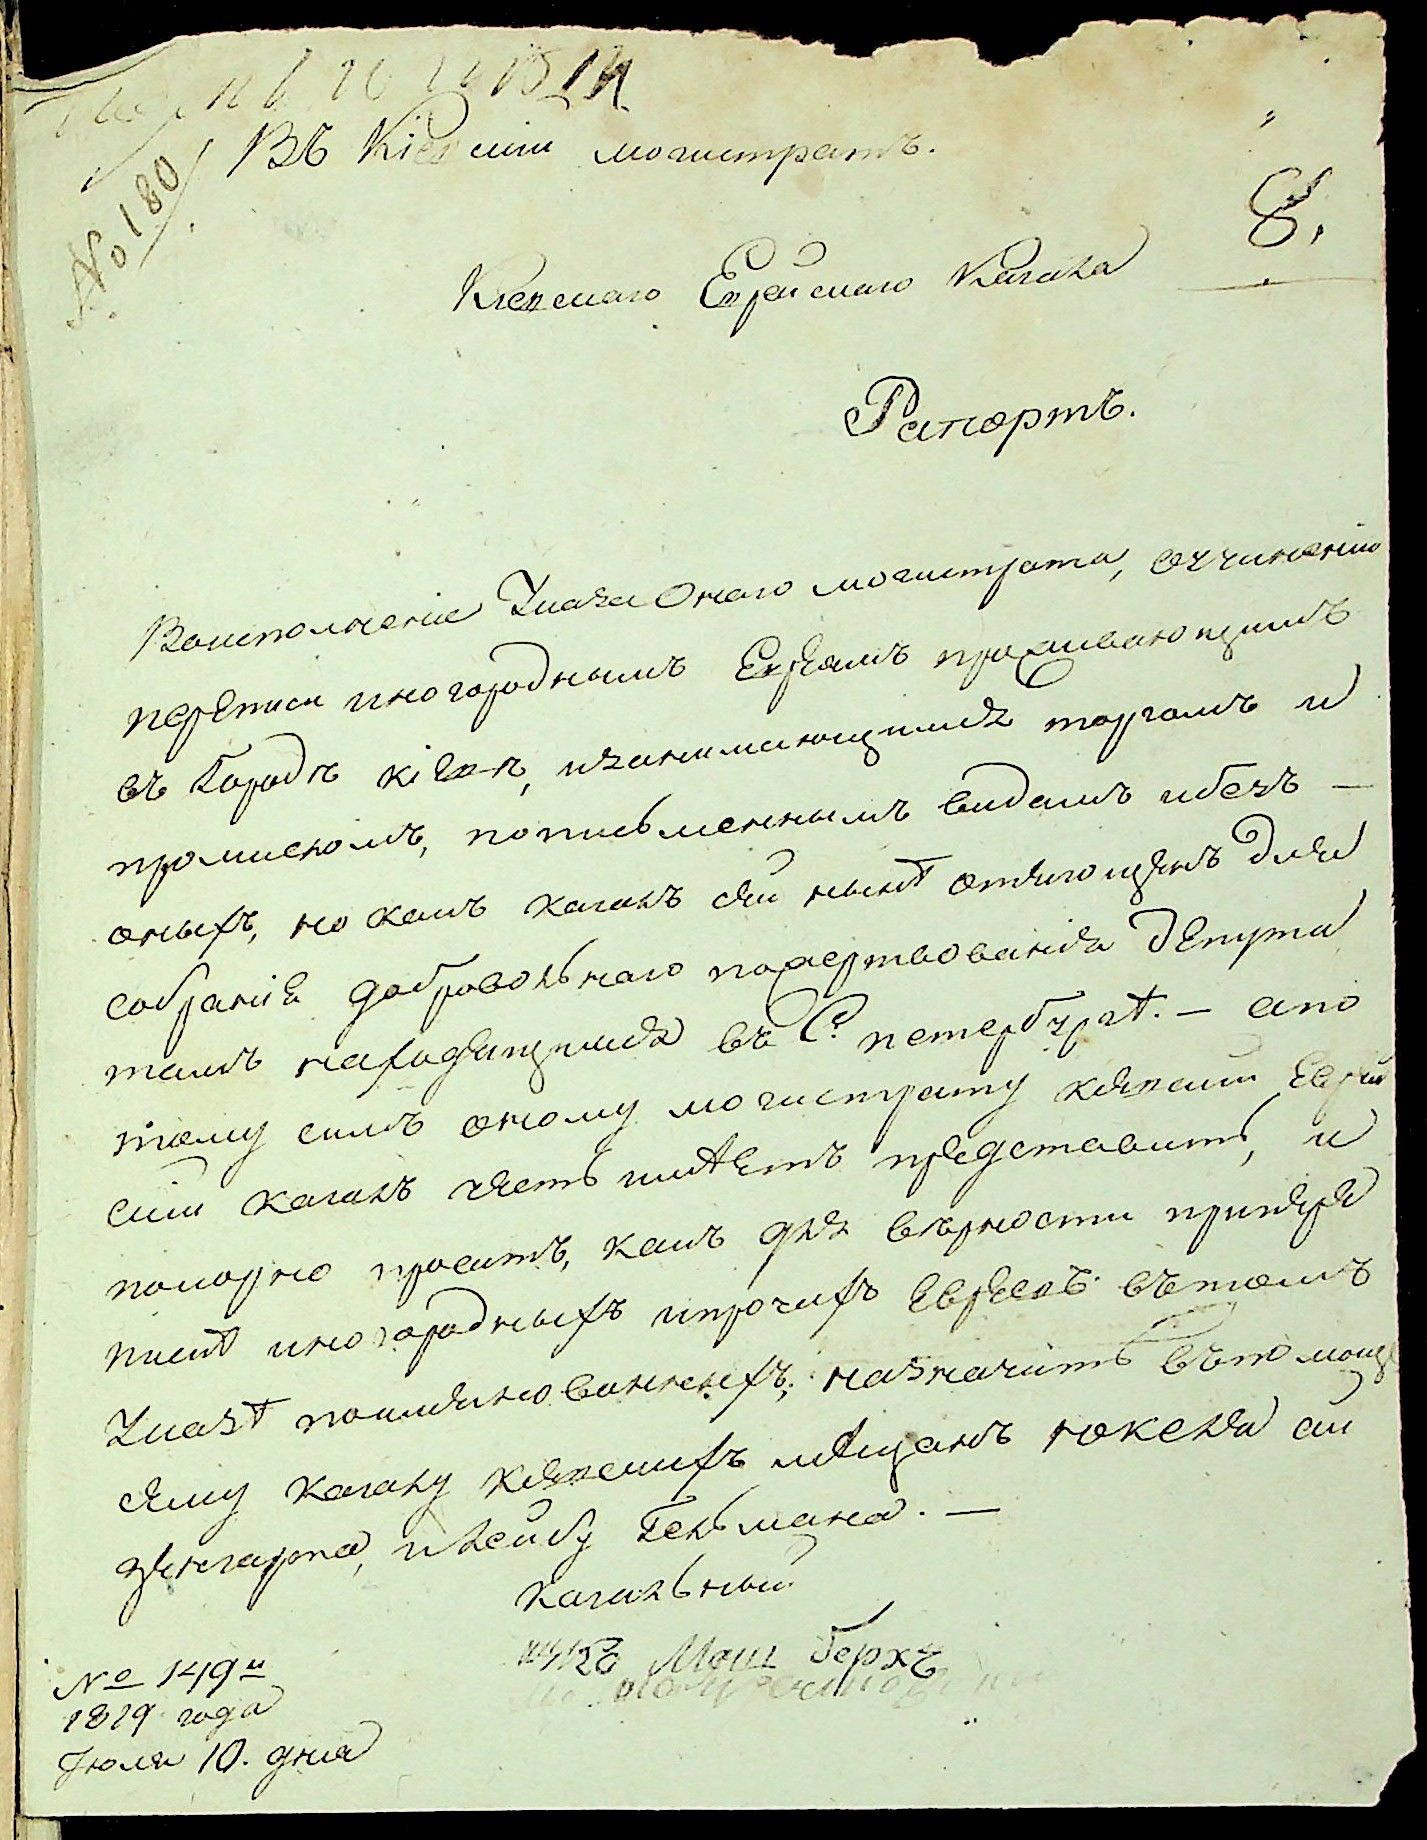 № 180
Въ Кіевскій могистратъ.
8.
Кіевскаго Еврейскаго Кагала
Рапортъ.
Воисполненіе Указа Онаго могистрата, оучиненіи
перѣписи иногороднымъ Евреямъ проживающимъ
въ городѣ Кіевѣ, изанимающимся торгомъ и
промисломъ, пописьменнымъ видамъ ибезъ —
оныхъ, но какъ кагалъ сей нынѣ отягощенъ для
собранія доброволнаго пожертвованія депута
тамъ находящимся въ С. петербургѣ. — апо
тому симъ оному могистрату кіевскій Еврей
скій кагалъ честь имѣетъ представить, и
покорно проситъ, какъ для вѣрности припере
писѣ иногородныхъ ипрочихъ Евреевъ вътомъ
Указѣ поимянованныхъ, назначить въпомощь
сему кагалу кіевскихъ мѣщанъ
и Лейбу Гельмана. —
Кагальный
Мош Берхъ
№ 149й
1819 года
Іюля 10. дня